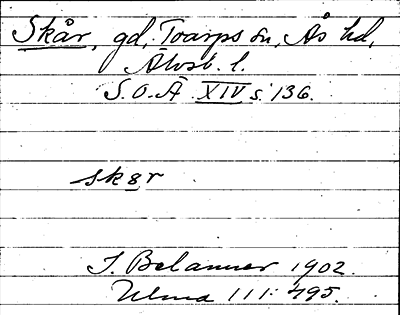 Skår, gd, Toarps sn, Ås hd,
Älvsb. l.
S.O.Ä XIV s. 136.
skɐr
J. Belanner 1902.
Ulma 111: 495.